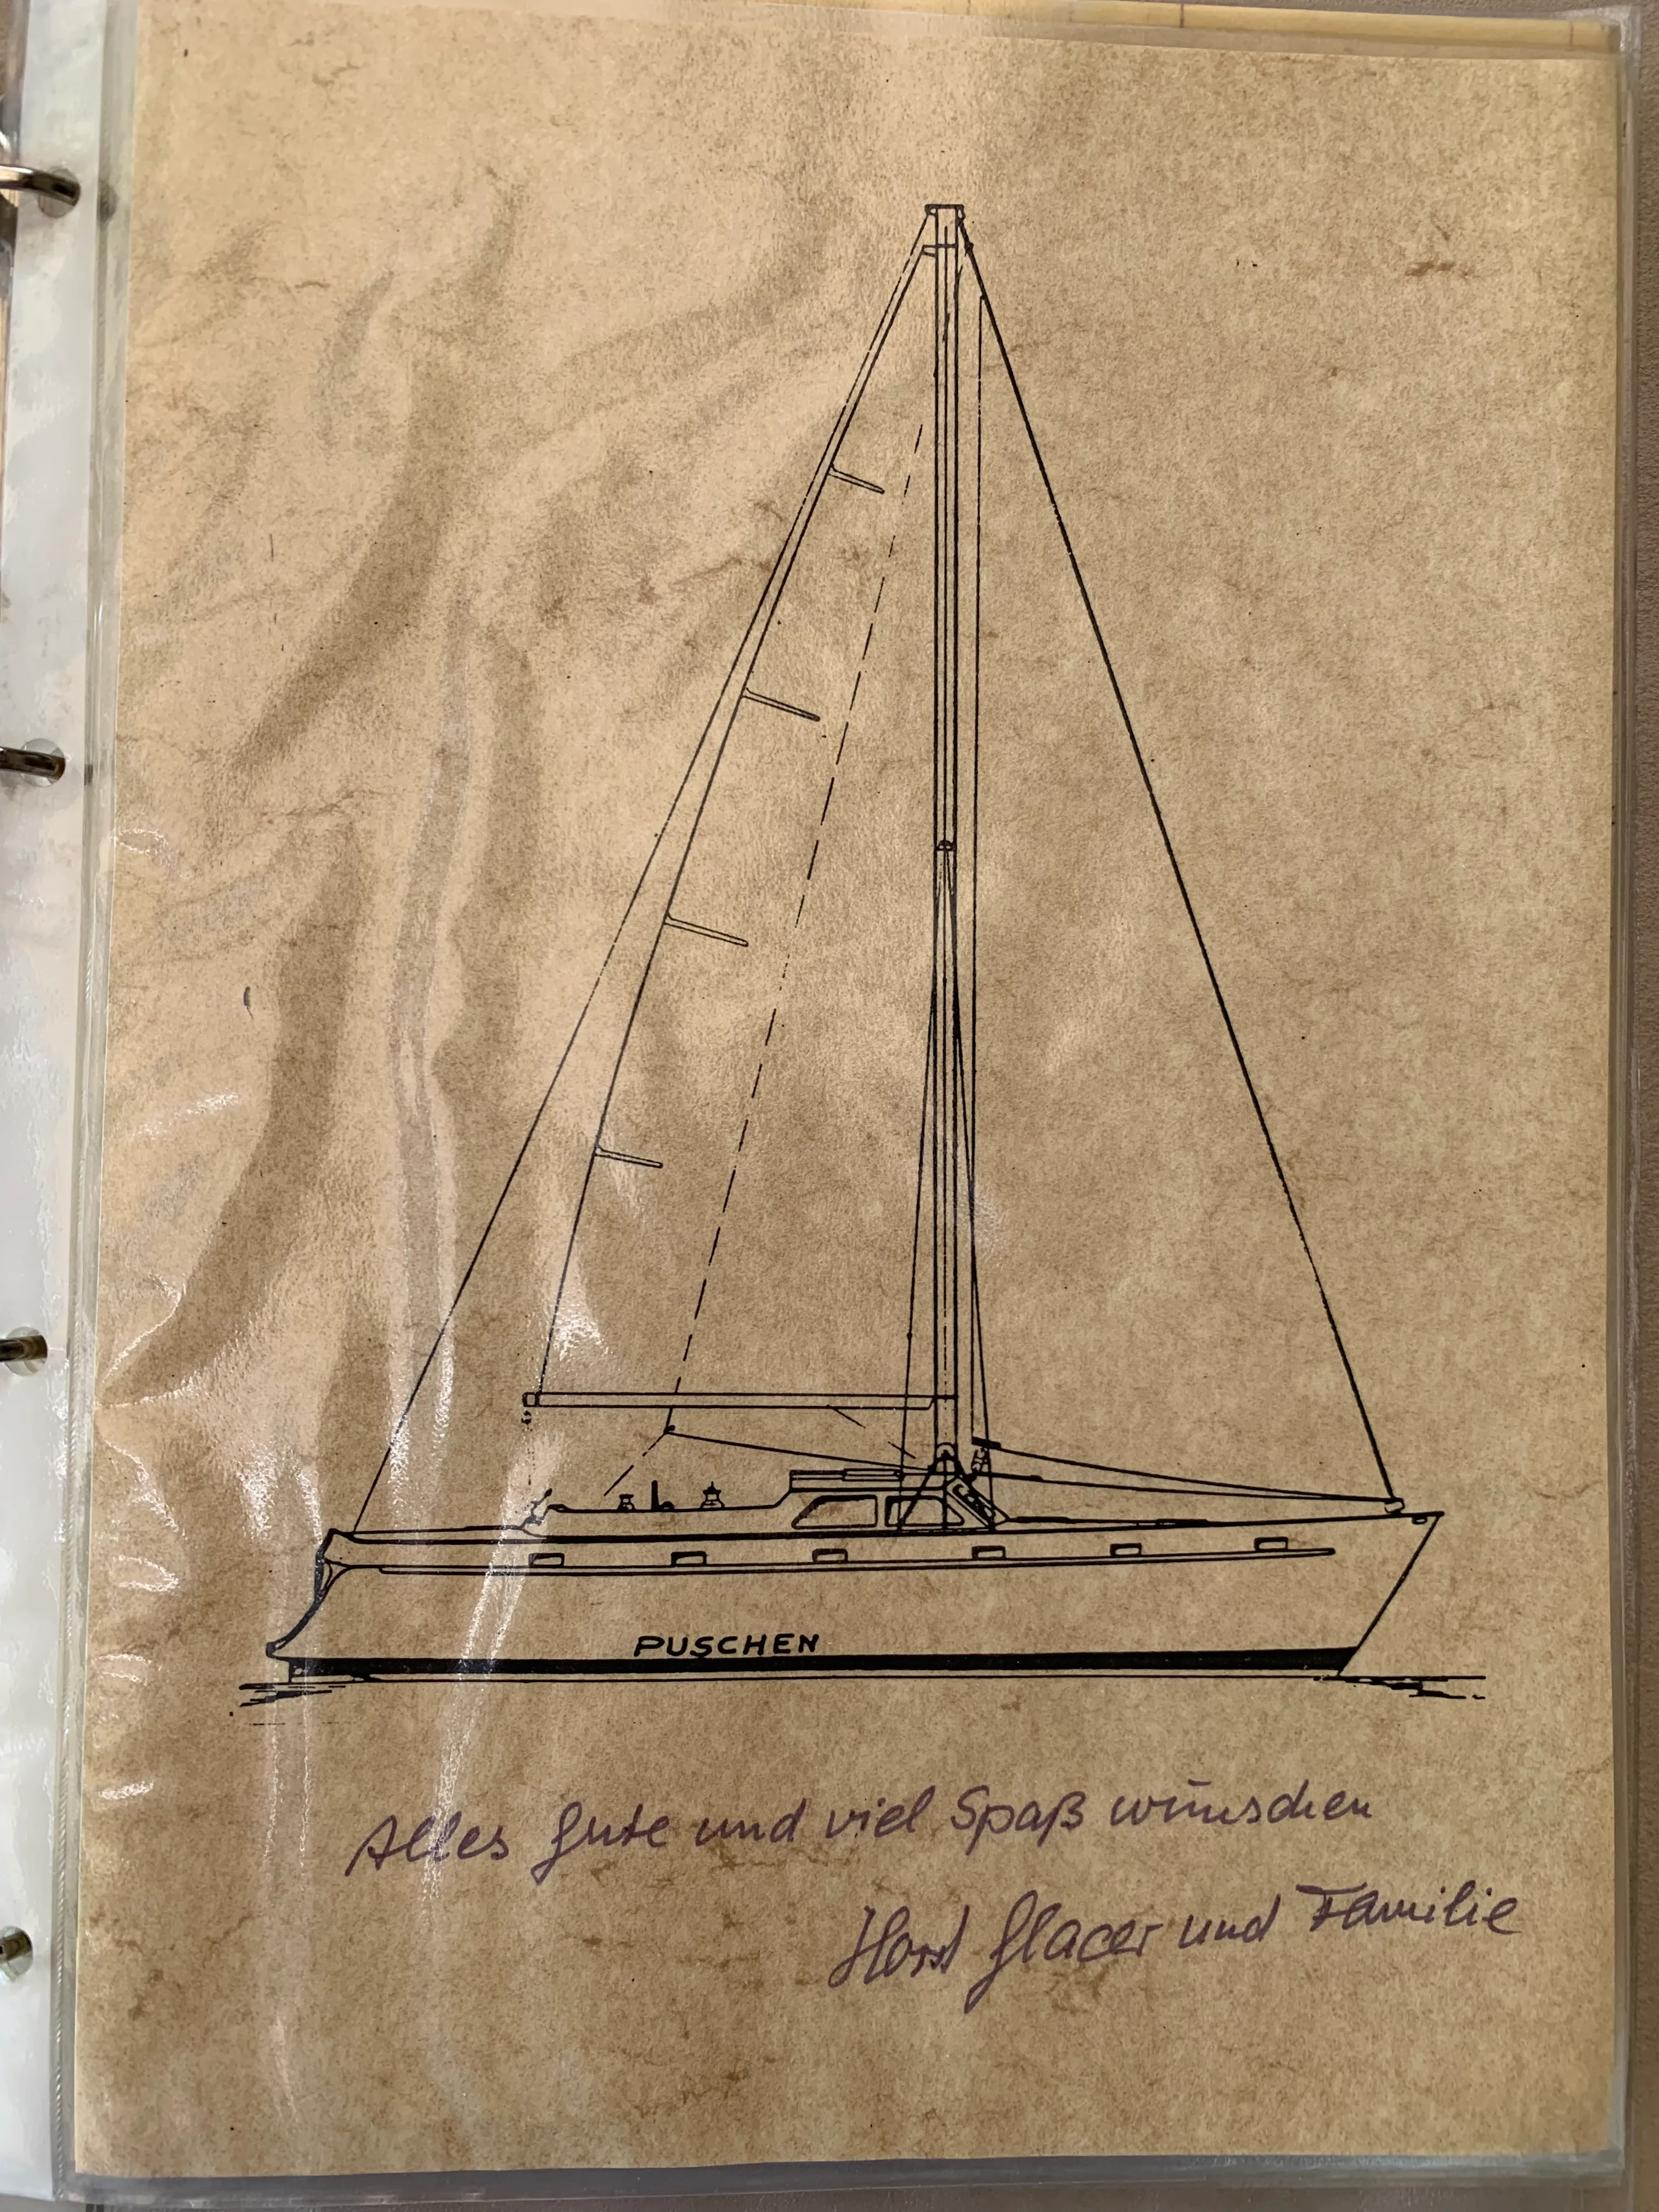 PUSCHEN
Alles Gute und viel Spaß wünschen
Horst Glacer und Familie